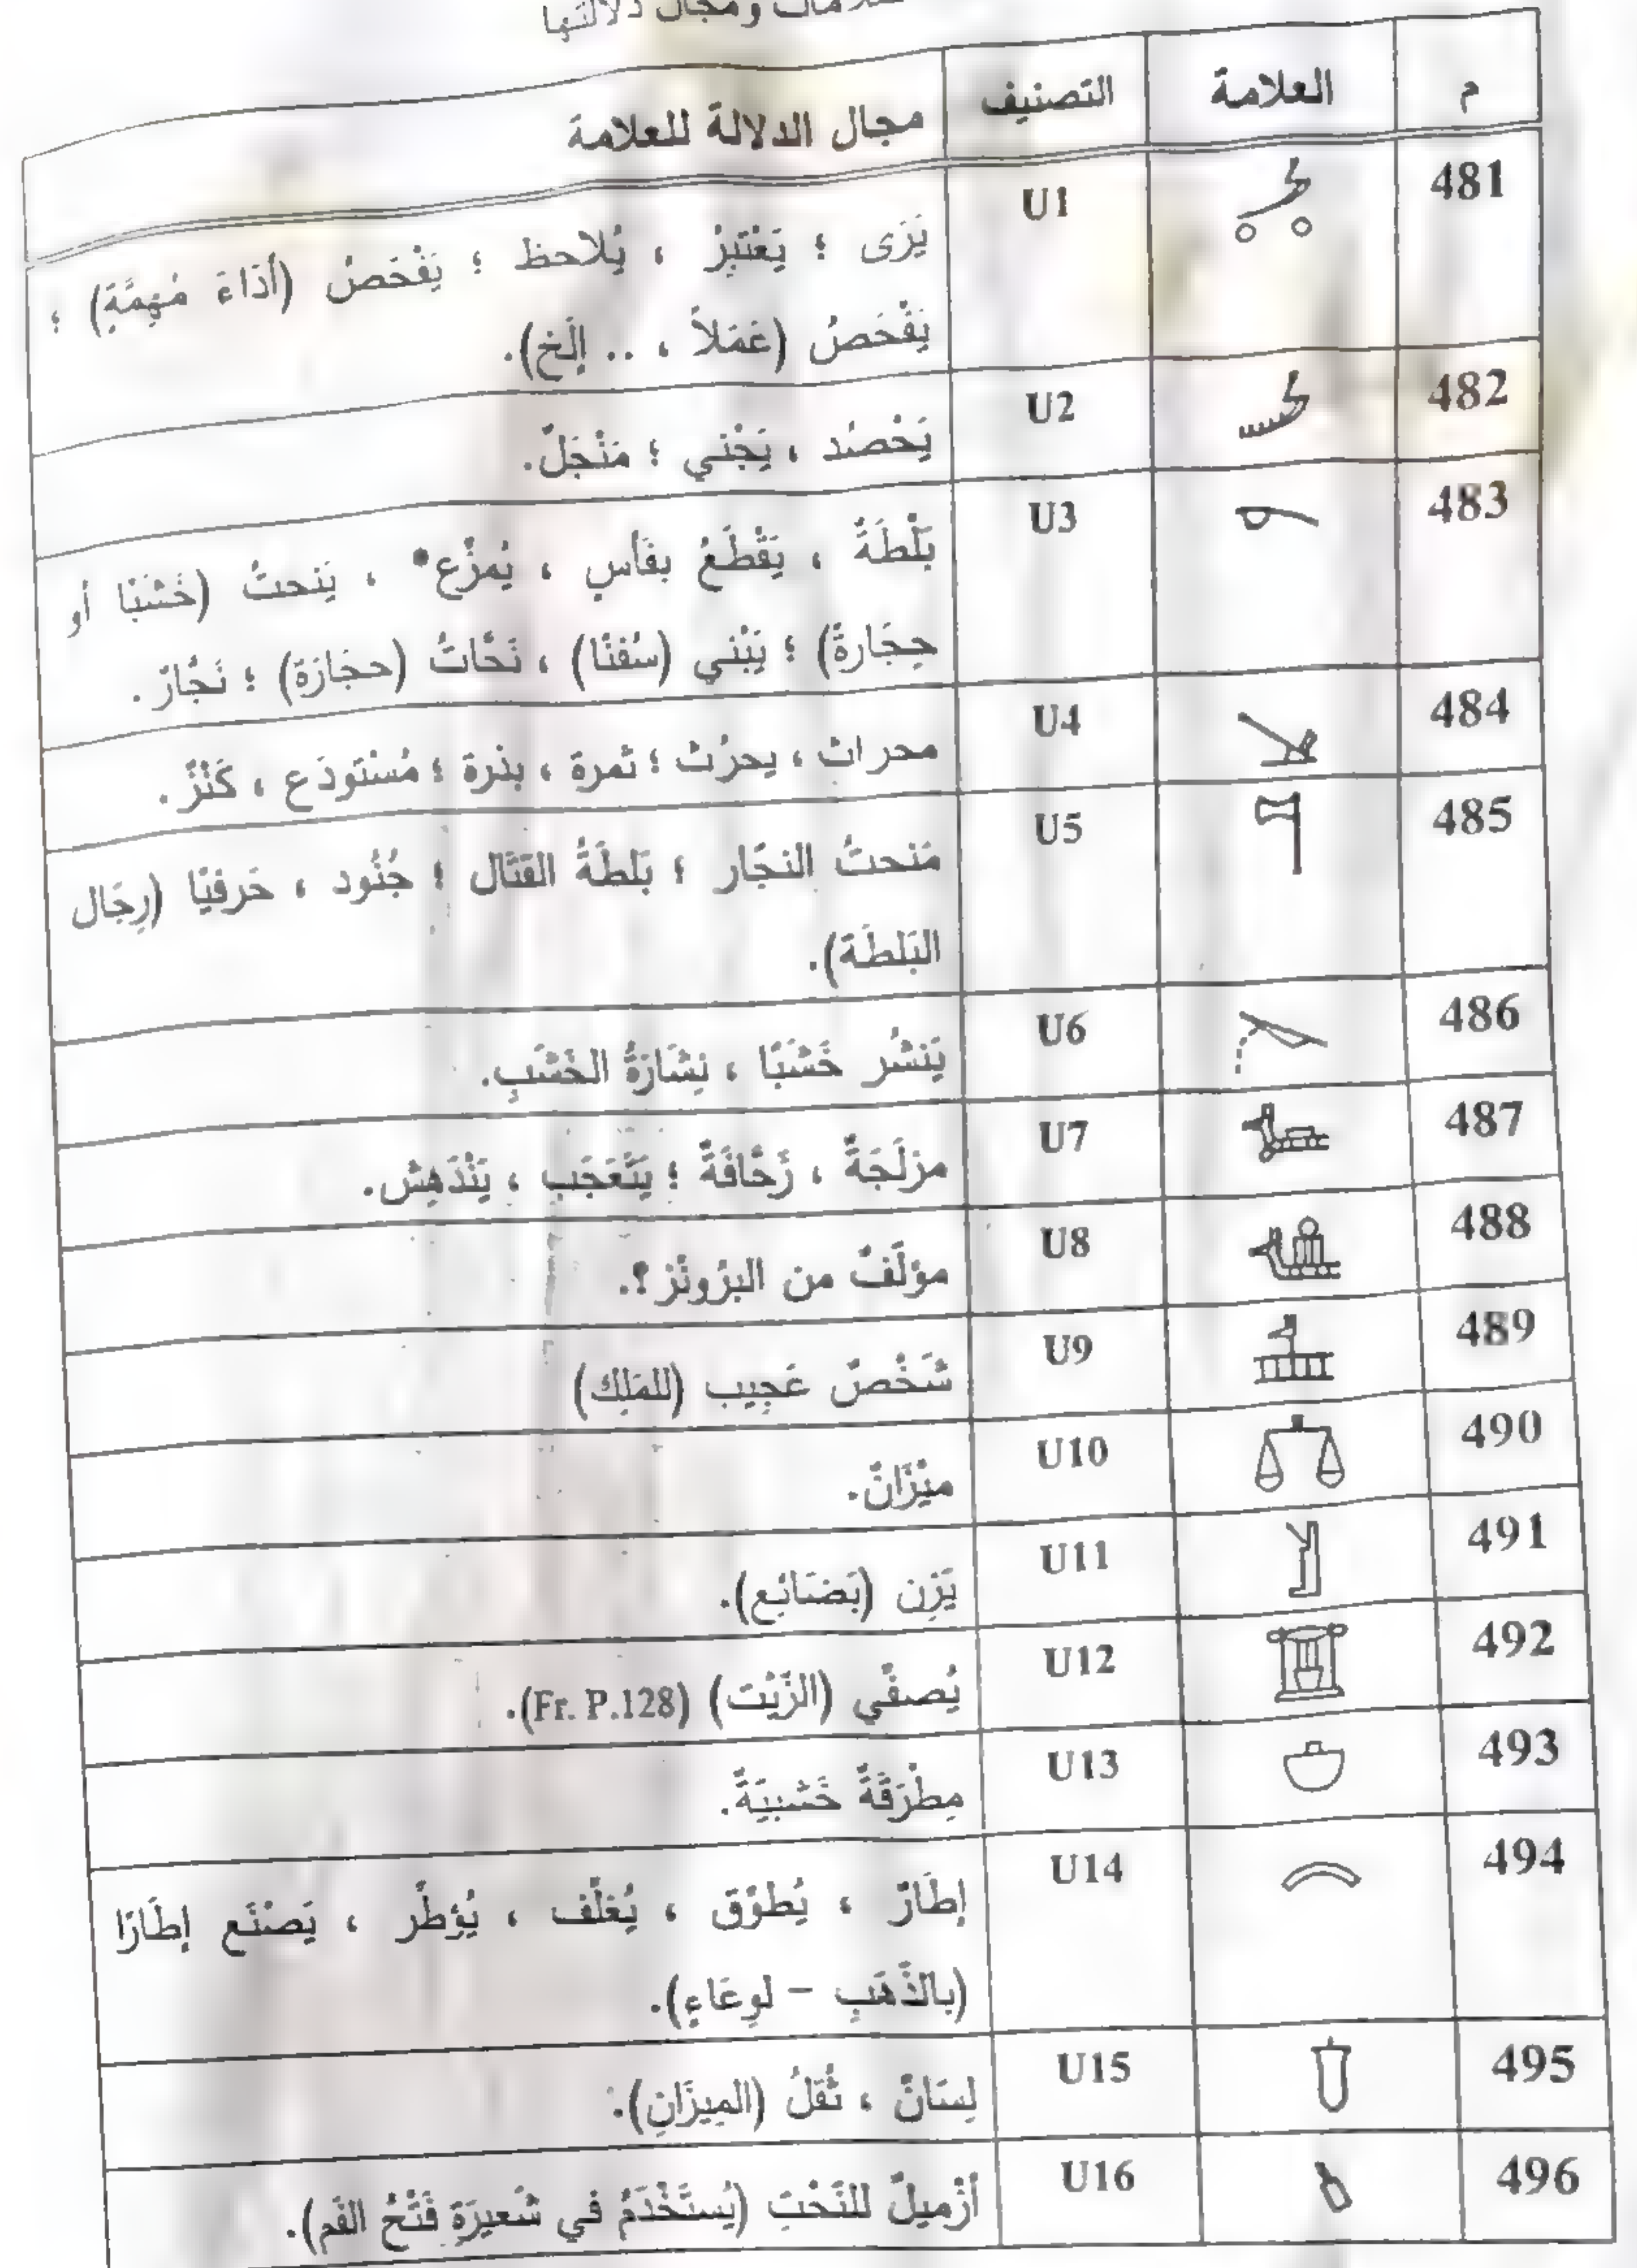 ومجال دلالتها
م العلامة التصنيف مجال الدلالة للعلامة
481 U1 يَرَى ؛ يَعْتَبِرُ ، يُلاحظ ؛ يَفْحَصُ (أَدَاءَ مُهِمَّةٍ) ؛
يَفْحَصُ (عَمَلاً ، .. إلَخ).
482 U2 يَحْصُد ، يَجْني ؛ مَنْجَلٌ.
483 U3 بَلْطَةٌ ، يَقْطَعُ بفَأسٍ ، يُمزّع* ، يَنحتُ (خَشَبًا أو
حِجَارةً) ؛ يَبْني (سُفنًا) ، نَحَّاتُ (حجَارَة) ؛ نَجَّارٌ .
484 U4 محراث ، يحرُث ؛ ثمرة ، بذرة ؛ مُسْتودَع ، كَنْزٌ.
485 U5 مَنحتُ النجّار ؛ بَلطَةُ القتَال ؛ جُنُود ، حَرفيًا (رِجَال
البَلطَة).
486 U6 يَنشُر خَشَبًا ، نِشَارَةُ الخَشَبِ.
487 U7 مزلَجَةٌ ، زَحَّافَةٌ ؛ يَتَعَجَب ، يَنْدَهِش.
488 U8 مؤلَّفٌ من البرُونْز ؟.
489 U9 شَخْصٌ عَجِيب (للمَلِك)
490 U10 ميْزَانٌ.
491 U11 يَزِن (بَضَائِع).
492 U12 يُصفِّي (الزَّيْت) (Fr. P.128).
493 U13 مِطْرَقَةٌ خَشبيَةٌ.
494 U14 إطَارٌ ، يُطوّق ، يُغلّف ، يُؤطّر ، يَصْنَع إطَارًا
(بالذَّهَبِ – لوِعَاءٍ).
495 U15 لِسَانٌ ، ثُقَلُ (المِيزَانِ).
496 U16 أزْميلٌ للنَّحْتِ (يُستَخْدَمُ في شَعيرَةِ فَتْحُ الفَم).